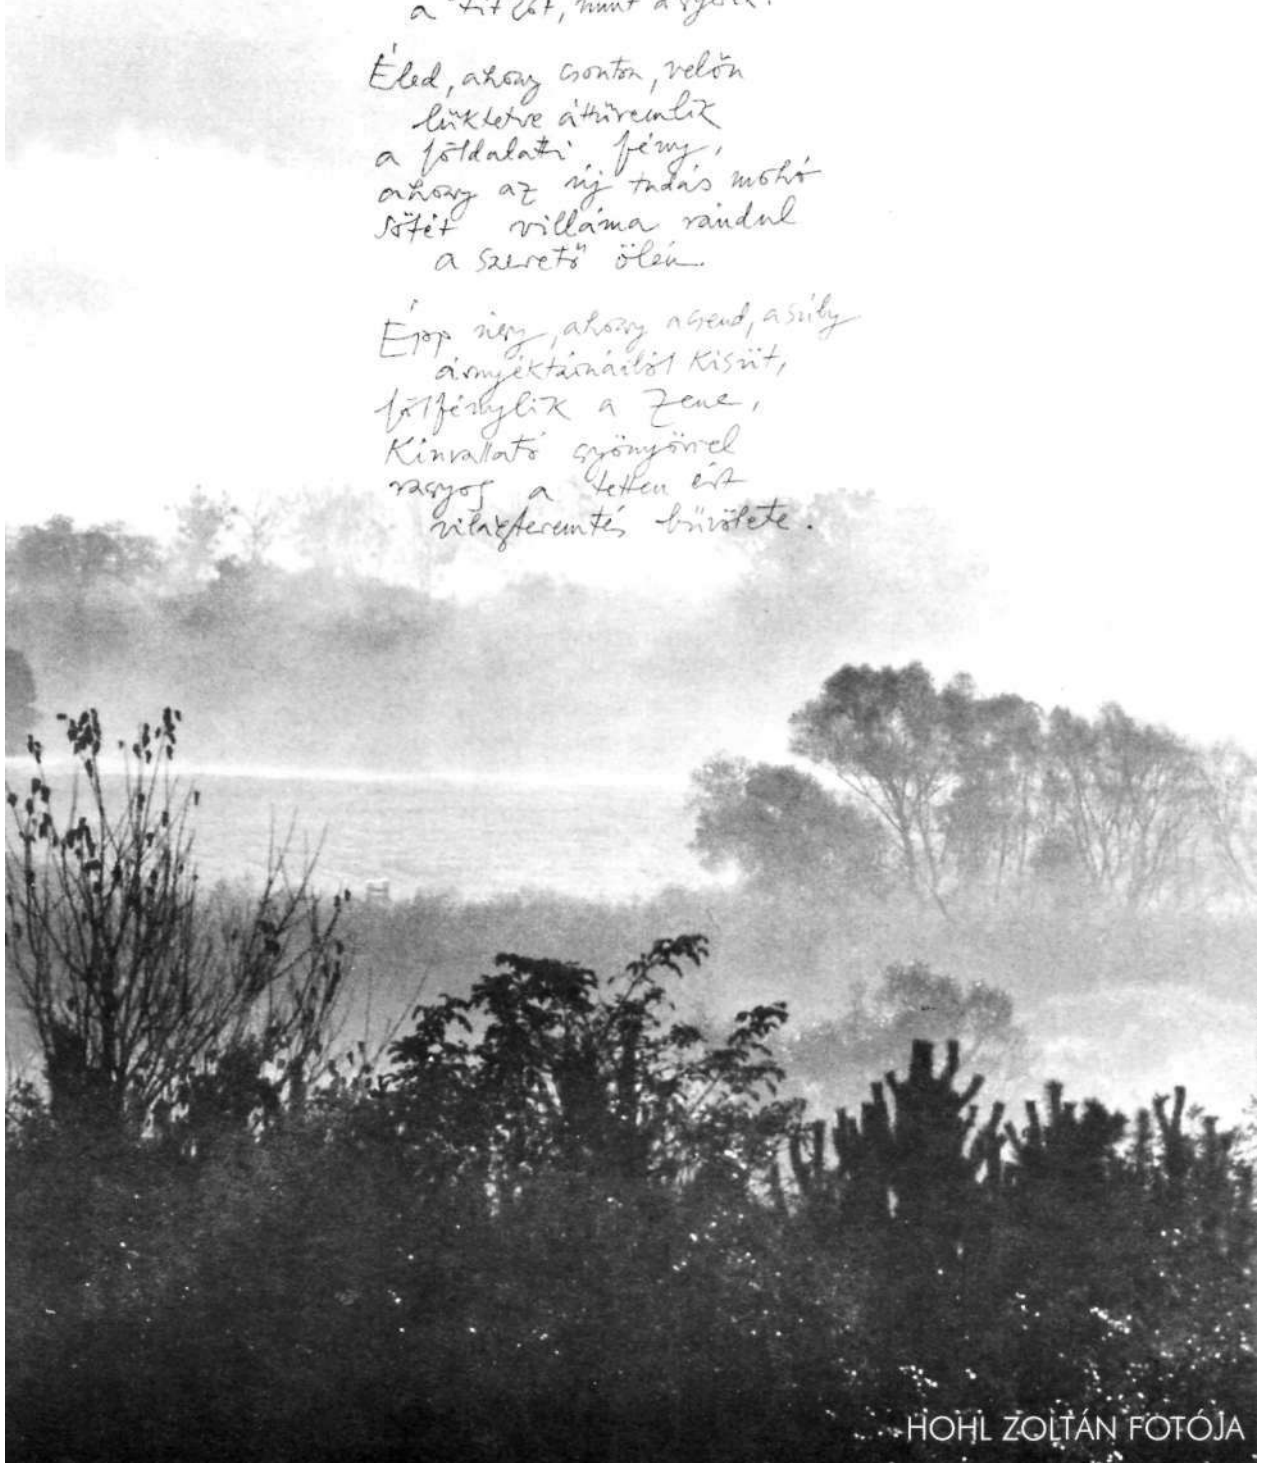 a titkot, mint a gyerek.
Éled, ahogy csonton, velőn
lüktetve áttüremlik
a földalatti fény,
ahogy az új tudás mohó
sötét villáma rándul
a szerető ölén.
Épp úgy, ahogy a csend, a súly
árnyéktárnáiból kisüt,
fölfénylik a zene,
Kínvallató gyönyörrel
ragyog a tetten ért
világteremtés bűvölete.
HOHL ZOLTÁN FOTÓJA